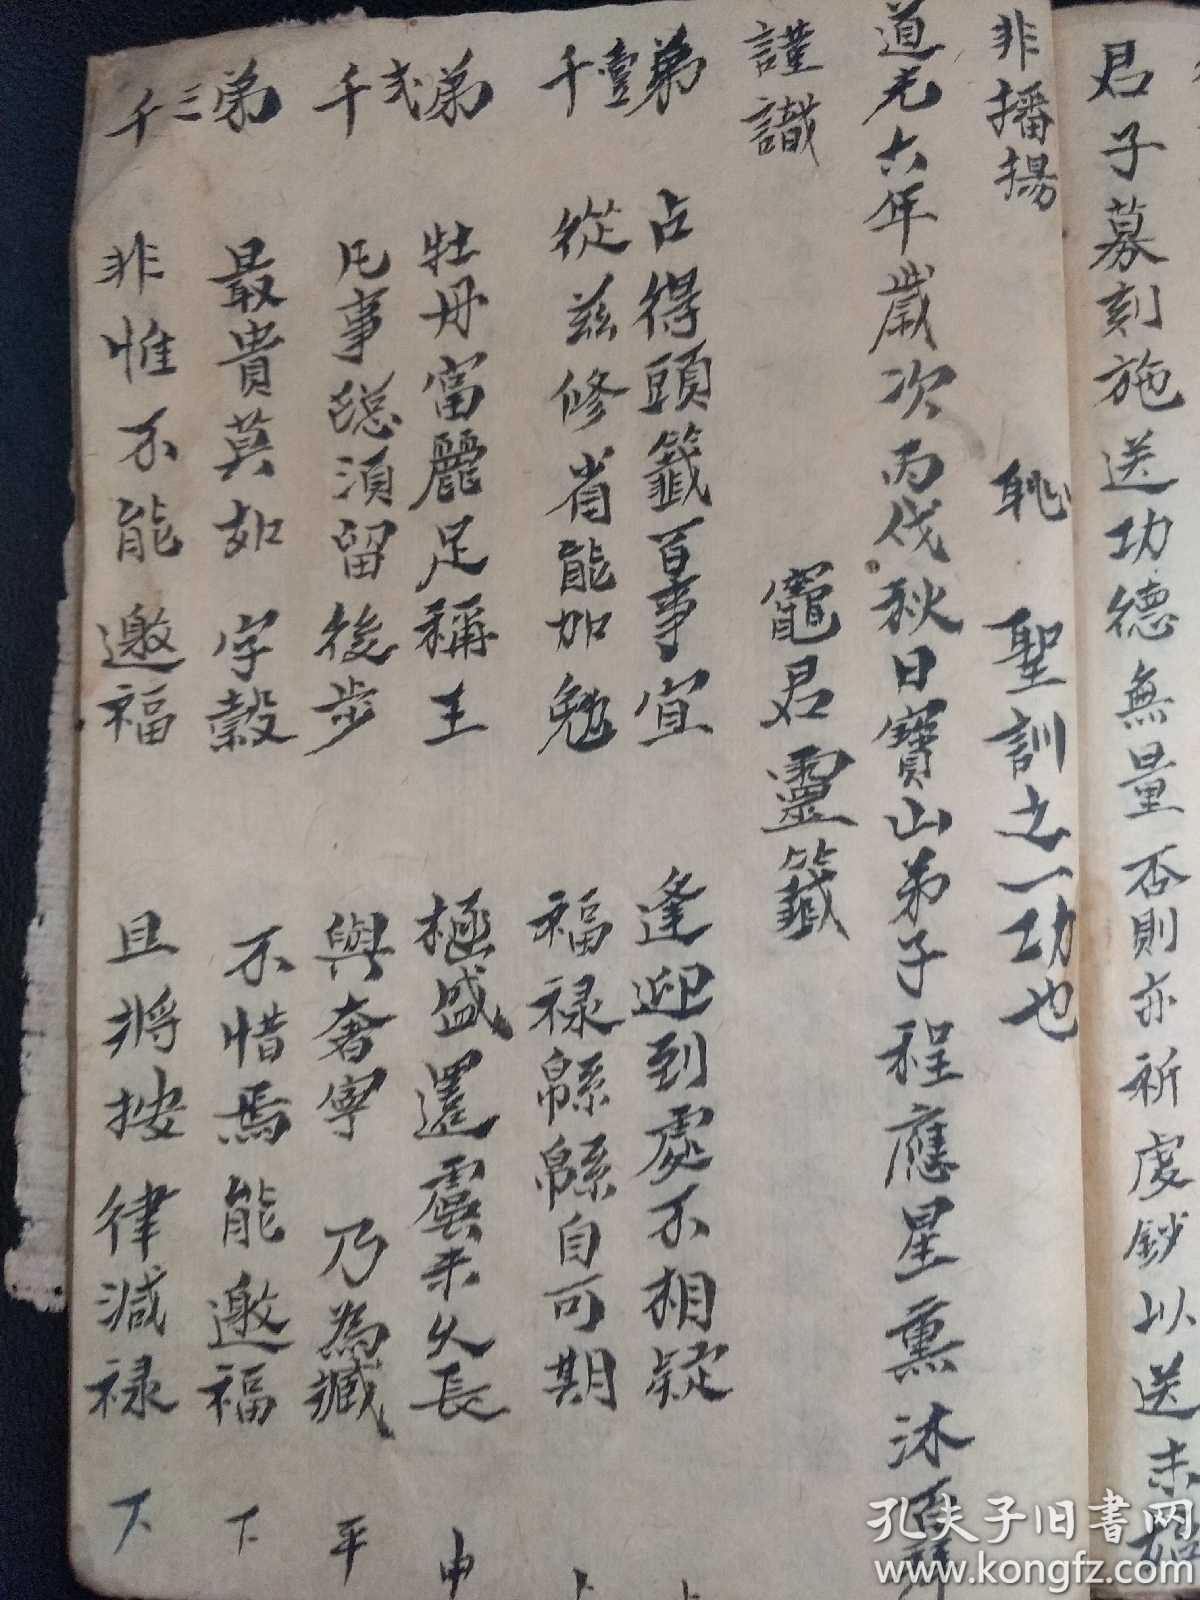 君子募刻施送功德無量否則亦祈虔鈔以送未始
非播揚 聖訓之一功也
道光六年歲次丙戌秋日寶山弟子程應星熏沐百拜
謹識
竈君靈籤
第壹千
占得頭籤百事宜 逢迎到處不相疑 上
從茲修省能加勉 福禄綿綿自可期 上
第弍千
牡丹富麗足稱王 極盛還虞未久長 中
凡事總須留後步 與奢寧乃為臧 平
第三千
最貴莫如字穀 不惜焉能邀福 下
非惟不能邀福 且將按律減禄 下
孔夫子旧书网
www.kongfz.com